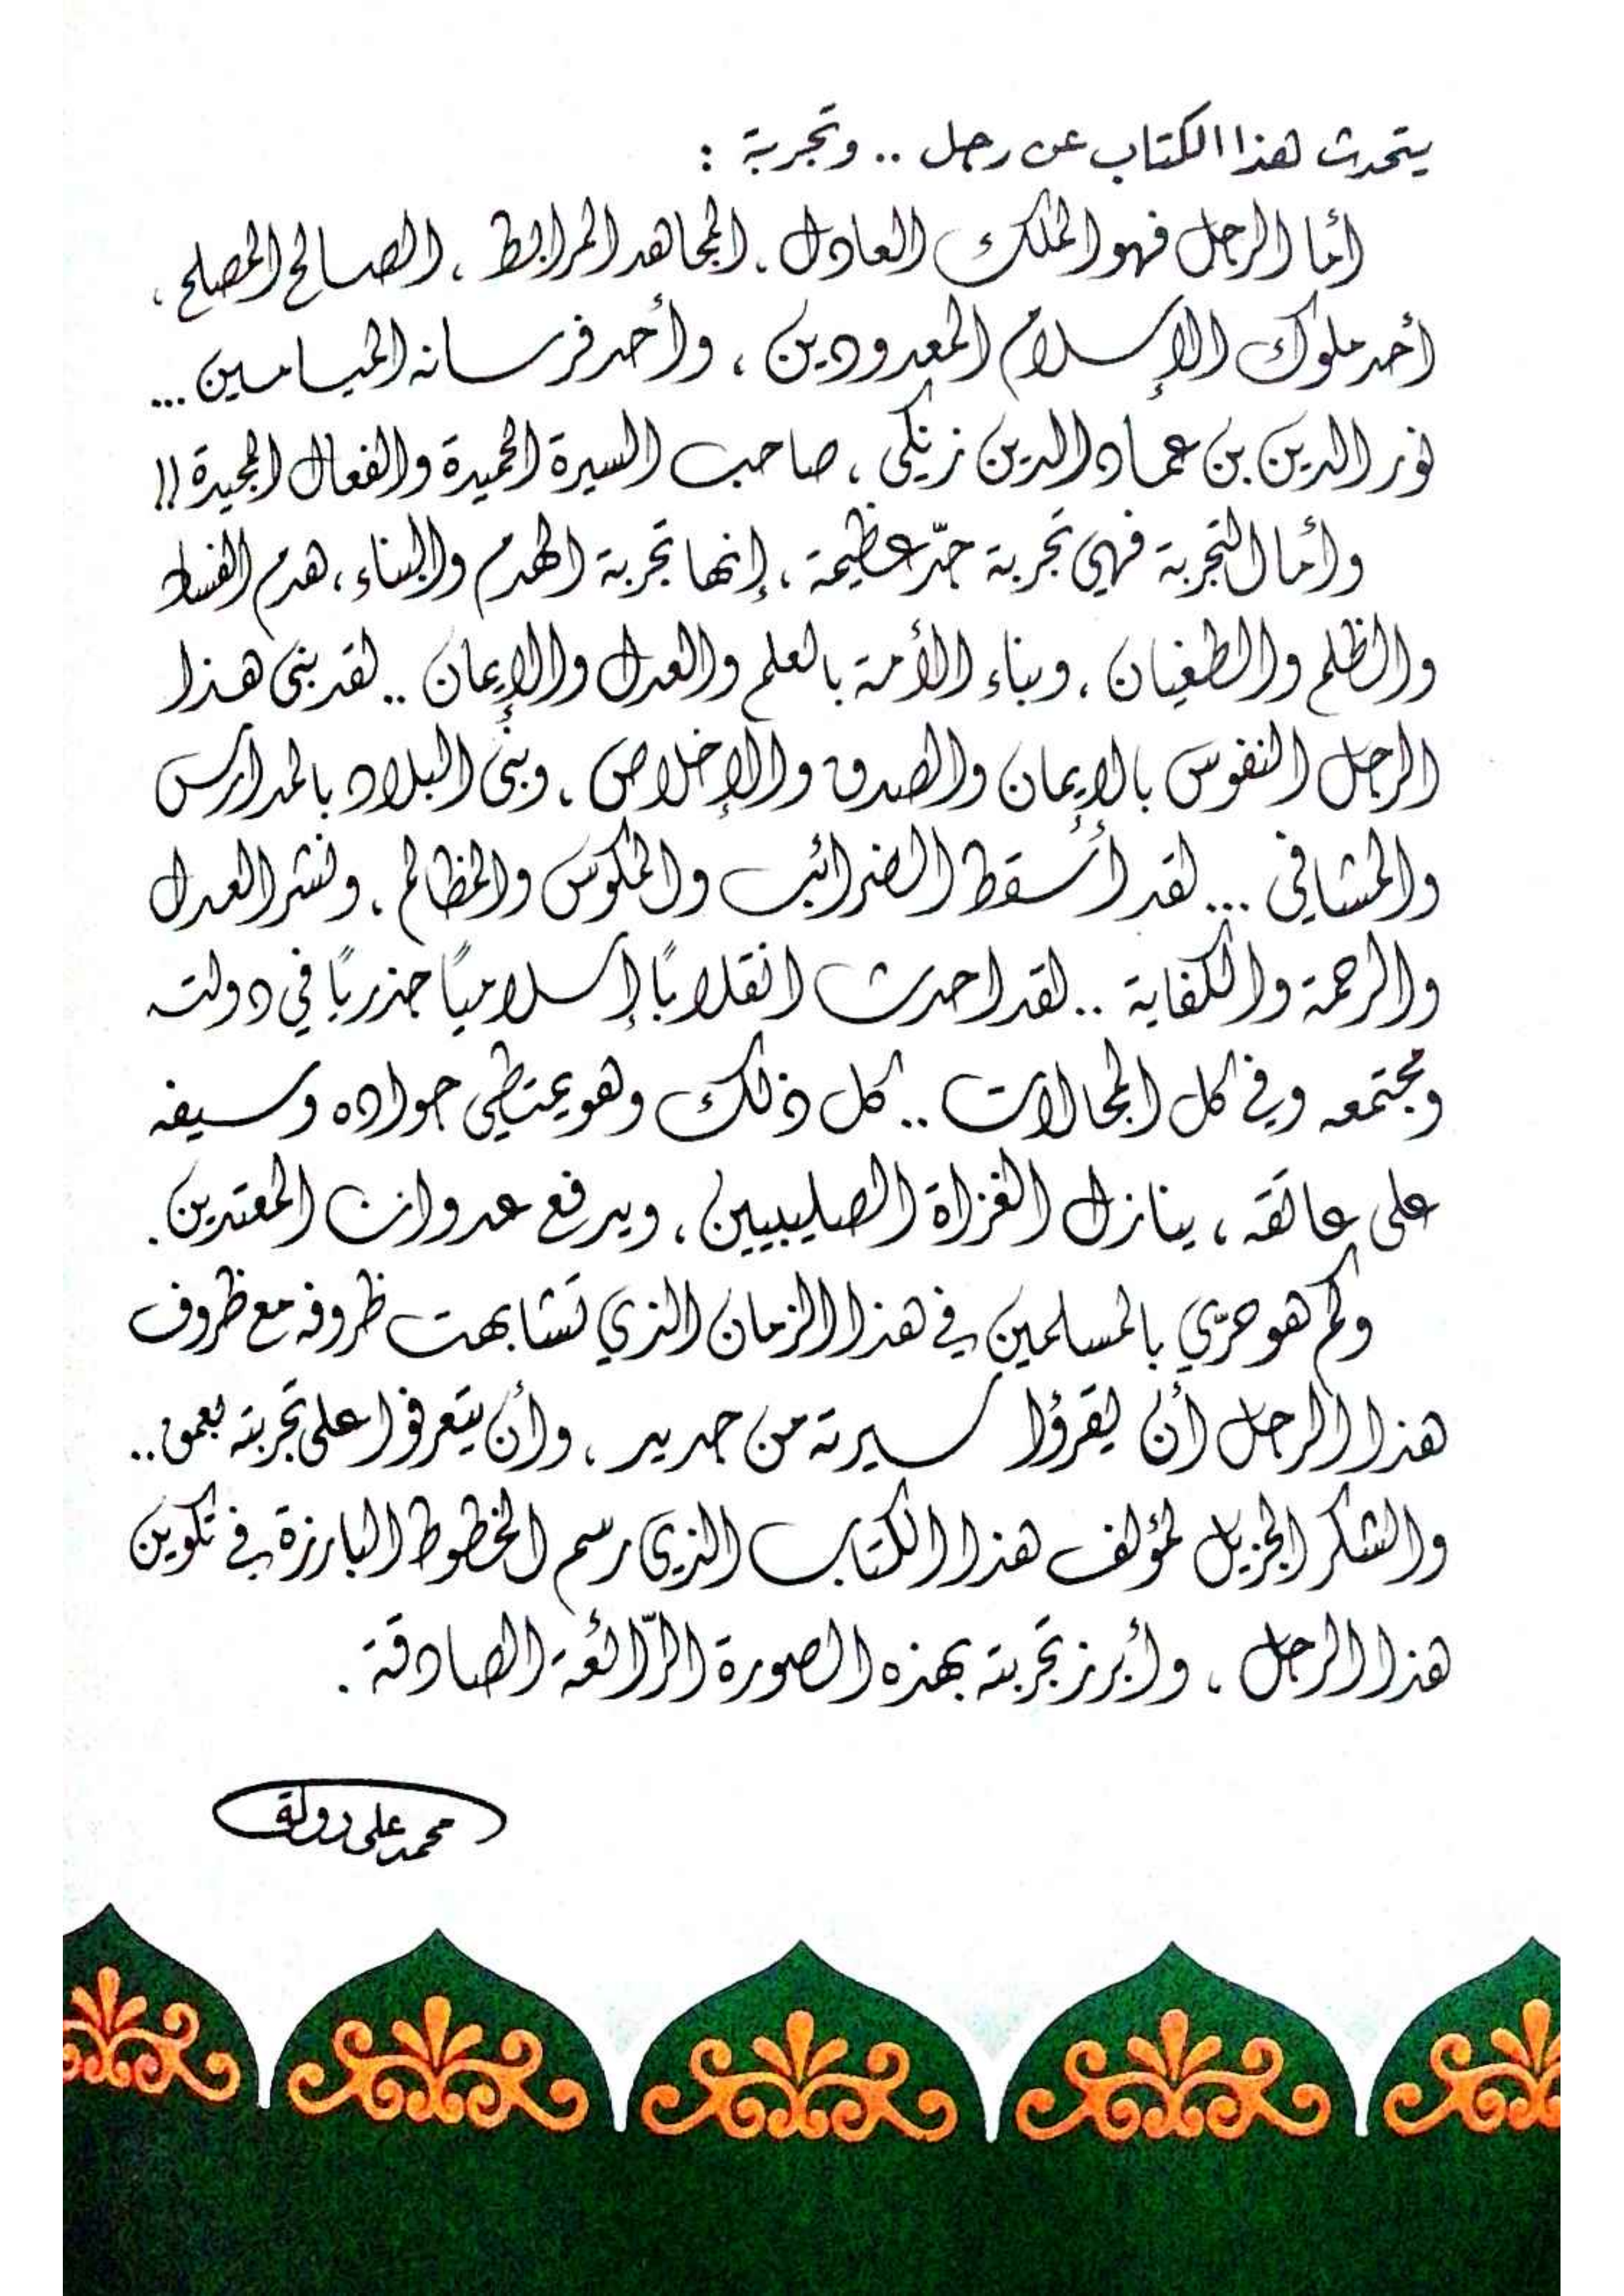 يتحدث هذا الكتاب عن رجل .. وتجربة :
أما الرجل فهو الملك العادل ، المجاهد المرابط ، الصالح المصلح ،
أحد ملوك الإسلام المعدودين ، وأحد فرسانه الميامين ...
نور الدين بن عماد الدين زنكي ، صاحب السيرة الحميدة والفعال المجيدة !!
وأما التجربة فهي تجربة جدّ عظيمة ، إنها تجربة الهدم والبناء ، هدم الفساد
والظلم والطغيان ، وبناء الأمة بالعلم والعدل والإيمان .. لقد بنى هذا
الرجل النفوس بالإيمان والصدق والإخلاص ، وبنى البلاد بالمدارس
والمشافي ... لقد أسقط الضرائب والمكوس والمظالم ، ونشر العدل
والرحمة والكفاية .. لقد احدث انقلابًا إسلاميًا جذريًا في دولته
ومجتمعه وفي كل المجالات .. كل ذلك وهو يمتطي جواده وسيفه
على عاتقه ، ينازل الغزاة الصليبيين ، ويدفع عدوان المعتدين .
وكم هو حريّ بالمسلمين في هذا الزمان الذي تشابهت ظروفه مع ظروف
هذا الرجل أن يقرؤا سيرته من جديد ، وأن يتعرفوا على تجربته بعمق ..
والشكر الجزيل لمؤلف هذا الكتاب الذي رسم الخطوط البارزة في تكوين
هذا الرجل ، وأبرز تجربته بهذه الصورة الرّائعة الصادقة .
محمد علي دولة